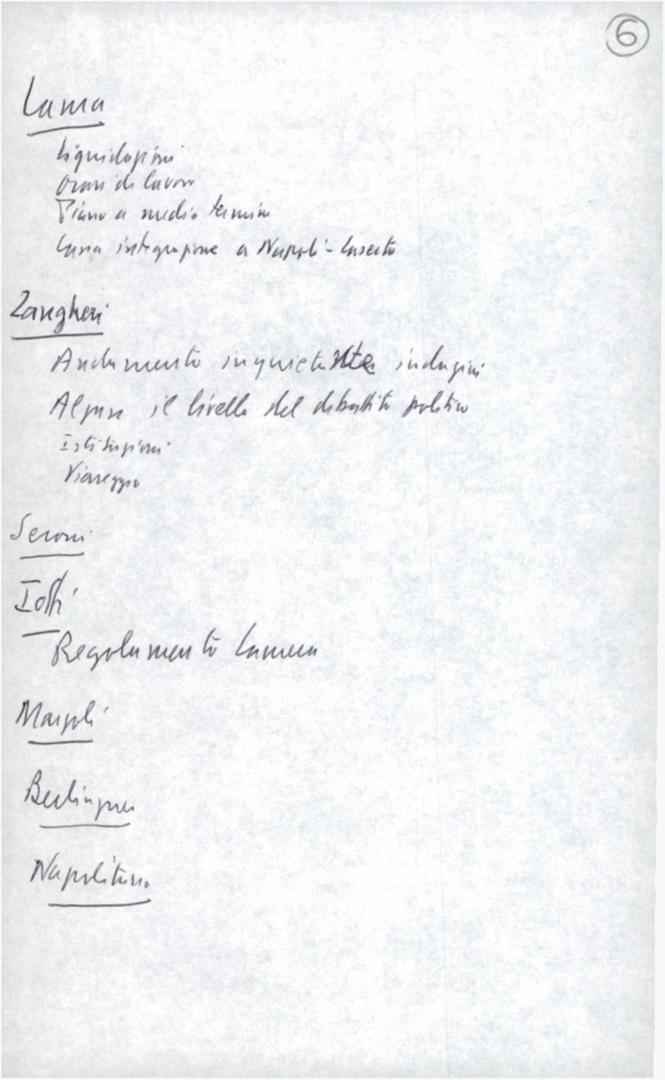 6
Lama
Liquidazioni
Orari di lavoro
Piano a medio termine
Cassa integrazione a Napoli - Caserta
Zangheri
Andamento inquietante indagini
Alzare il livello del dibattito politico
Istituzioni
Viareggio
Seroni
Iotti
Regolamento Camera
Berlinguer
Napolitano